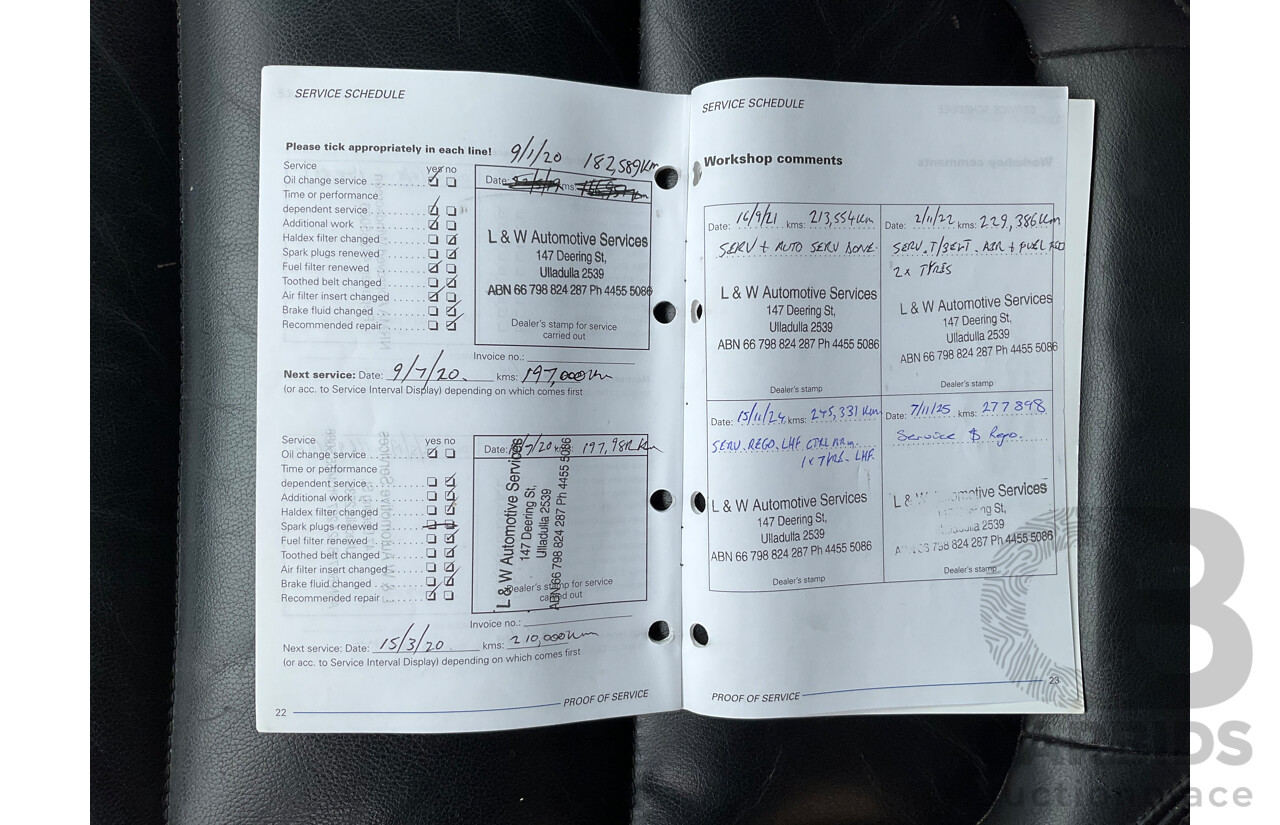 SERVICE SCHEDULE
Please tick appropriately in each line!
9/1/20 182,589Km
Service yes no
Oil change service
Time or performance
dependent service
Additional work
Haldex filter changed
Spark plugs renewed
Fuel filter renewed
Toothed belt changed
Air filter insert changed
Brake fluid changed
Recommended repair
Date: kms:
L & W Automotive Services
147 Deering St,
Ulladulla 2539
ABN 66 798 824 287 Ph 4455 5086
Dealer's stamp for service
carried out
Invoice no.:
Next service: Date: 9/7/20. kms: 197,000Km
(or acc. to Service Interval Display) depending on which comes first
Service yes no
Oil change service
Time or performance
dependent service
Additional work
Haldex filter changed
Spark plugs renewed
Fuel filter renewed
Toothed belt changed
Air filter insert changed
Brake fluid changed
Recommended repair
Date: /20 197,982 Km
L & W Automotive Services
147 Deering St,
Ulladulla 2539
ABN 66 798 824 287 Ph 4455 5086
Dealer's stamp for service
carried out
Invoice no.:
Next service: Date: 15/3/20 kms: 210,000Km
(or acc. to Service Interval Display) depending on which comes first
22
PROOF OF SERVICE
SERVICE SCHEDULE
Workshop comments
Date: 16/9/21 kms: 213,554Km
SERV + AUTO SERV DONE.
L & W Automotive Services
147 Deering St,
Ulladulla 2539
ABN 66 798 824 287 Ph 4455 5086
Dealer's stamp
Date: 2/11/22 kms: 229,386Km
SERV. T/BELT. AIR + FUEL
2x TYRES
L & W Automotive Services
147 Deering St,
Ulladulla 2539
ABN 66 798 824 287 Ph 4455 5086
Dealer's stamp
Date: 15/11/24 kms: 245,331 Km
SERV. REGO. LHF CTRL ARM.
1x TYRE. LHF.
L & W Automotive Services
147 Deering St,
Ulladulla 2539
ABN 66 798 824 287 Ph 4455 5086
Dealer's stamp
Date: 7/11/25 kms: 277898
Service & Rego.
L & W Automotive Services
St,
2539
798 824 287 Ph 4455 5086
Dealer's stamp
PROOF OF SERVICE
23